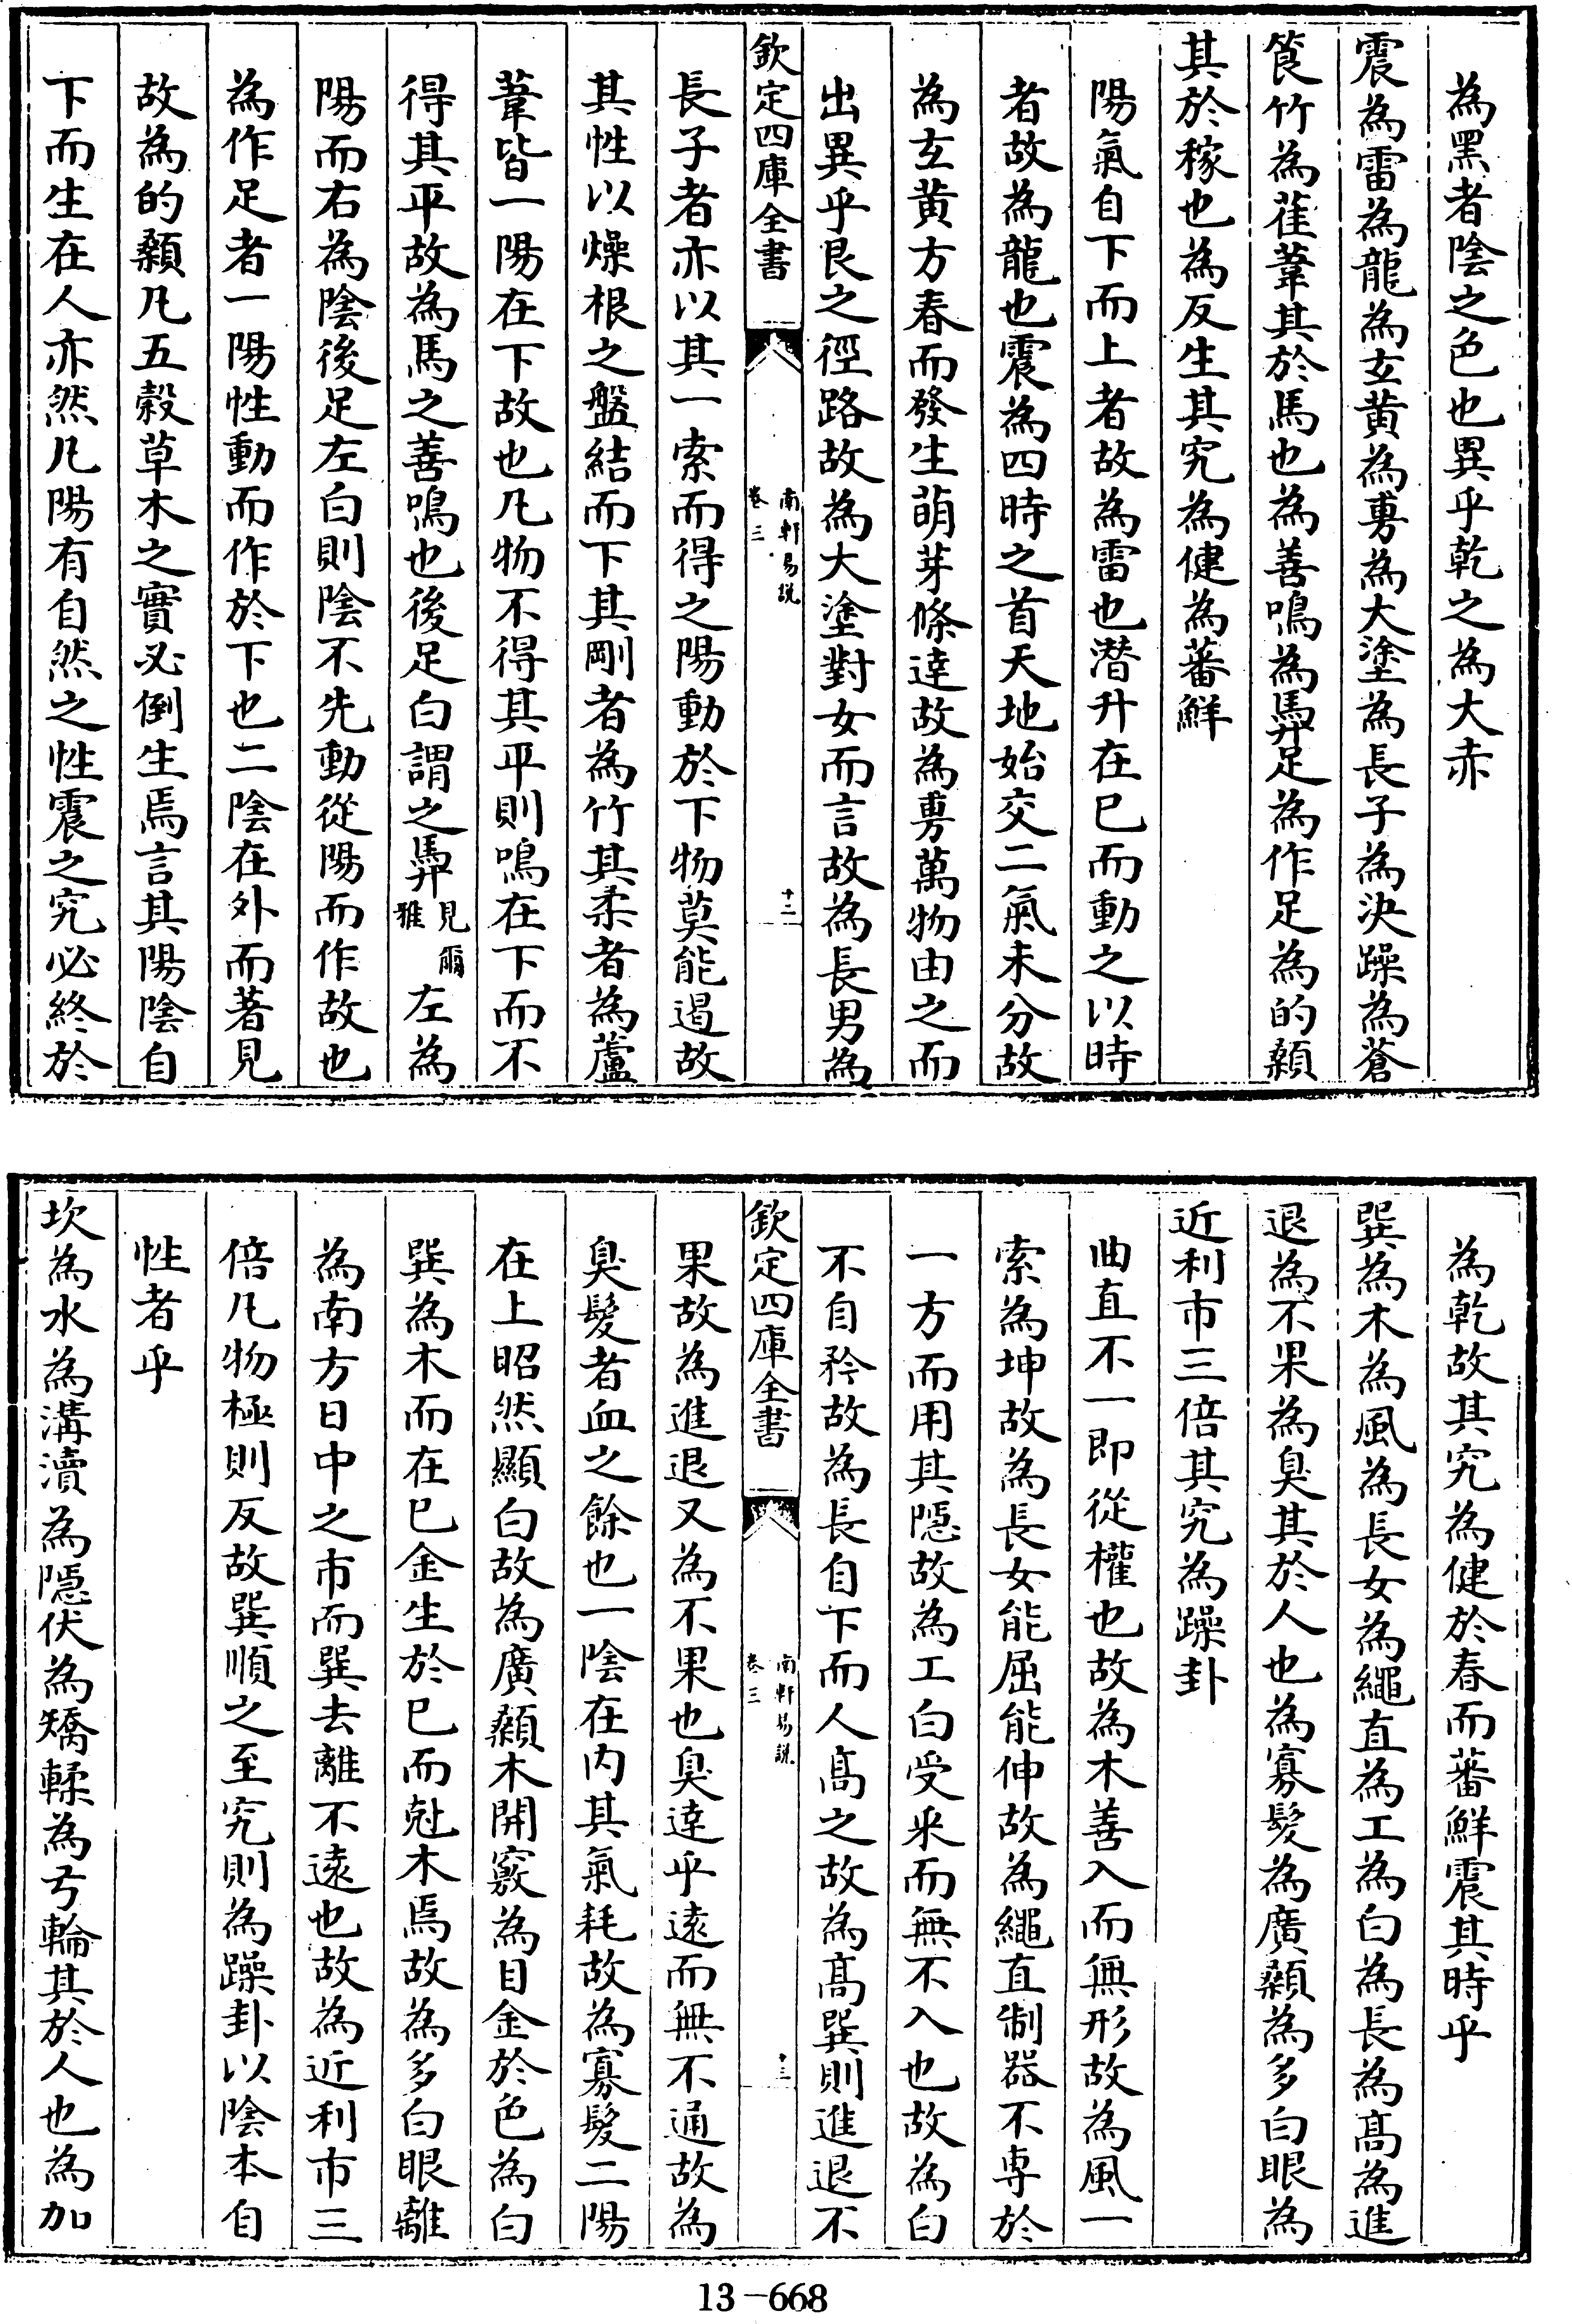 為黑者陰之色也異乎乾之為大赤
震為雷為龍為玄黃為旉為大塗為長子為決躁為蒼
筤竹為萑葦其於馬也為善鳴為馵足為作足為的顙
其於稼也為反生其究為健為蕃鮮
陽氣自下而上者故為雷也潛升在巳而動之以時
者故為龍也震為四時之首天地始交二氣未分故
為玄黃方春而發生萌芽條達故為旉萬物由之而
出異乎艮之徑路故為大塗對女而言故為長男為
欽定四庫全書
南軒易說
卷三
十二
長子者亦以其一索而得之陽動於下物莫能遏故
其性以燥根之盤結而下其剛者為竹其柔者為蘆
葦皆一陽在下故也凡物不得其平則鳴在下而不
得其平故為馬之善鳴也後足白謂之馵見爾雅左為
陽而右為陰後足左白則陰不先動從陽而作故也
為作足者一陽性動而作於下也二陰在外而著見
故為的顙凡五穀草木之實必倒生焉言其陽陰自
下而生在人亦然凡陽有自然之性震之究必終於
為乾故其究為健於春而蕃鮮震其時乎
巽為木為風為長女為繩直為工為白為長為高為進
退為不果為臭其於人也為寡髮為廣顙為多白眼為
近利市三倍其究為躁卦
曲直不一即從權也故為木善入而無形故為風一
索為坤故為長女能屈能伸故為繩直制器不專於
一方而用其隱故為工白受采而無不入也故為白
不自矜故為長自下而人高之故為高巽則進退不
欽定四庫全書
南軒易說
卷三
十三
果故為進退又為不果也臭達乎遠而無不通故為
臭髮者血之餘也一陰在內其氣耗故為寡髮二陽
在上昭然顯白故為廣顙木開竅為目金於色為白
巽為木而在巳金生於巳而尅木焉故為多白眼離
為南方日中之市而巽去離不遠也故為近利市三
倍凡物極則反故巽順之至究則為躁卦以陰本自
性者乎
坎為水為溝瀆為隱伏為矯輮為弓輪其於人也為加
13-668